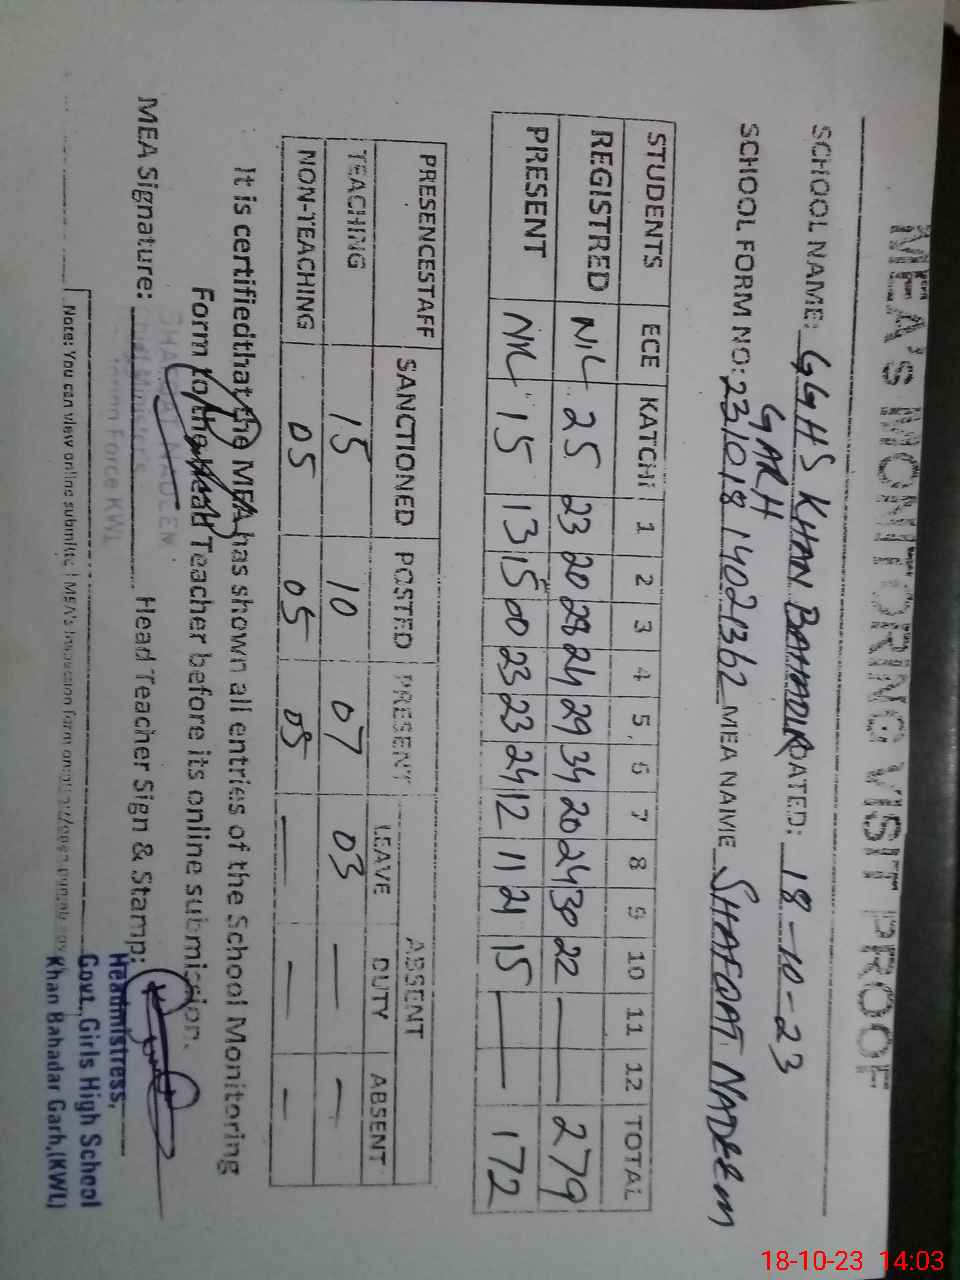 MEA'S MONITORING VISIT PROOF
SCHOOL NAME: GGHS KHAN BAHADUR DATED: 18-10-23
GARH
SCHOOL FORM NO: 231018 14021362 MEA NAME SHAFQAT NADEEM
STUDENTS ECE KATCHI 1 2 3 4 5 6 7 8 9 10 11 12 TOTAL
REGISTRED NIL 25 23 20 28 24 29 34 20 24 30 22 — — 279
PRESENT NIL 15 13 15 00 23 23 24 12 11 21 15 — — 172
PRESENCESTAFF SANCTIONED POSTED PRESENT ABSENT
LEAVE DUTY ABSENT
TEACHING 15 10 07 03 — —
NON-TEACHING 05 05 05 — — -
It is certifiedthat the MEA has shown all entries of the School Monitoring
Form to the Head Teacher before its online submission.
SHAFQAT NADEEN
Chief Minister's
Force KWL
MEA Signature: Head Teacher Sign & Stamp:
Headmistress,
Govt., Girls High School
Khan Bahadar Garh,(KWL)
Note: You can view online submitted MEA's Inspection form on
18-10-23 14:03